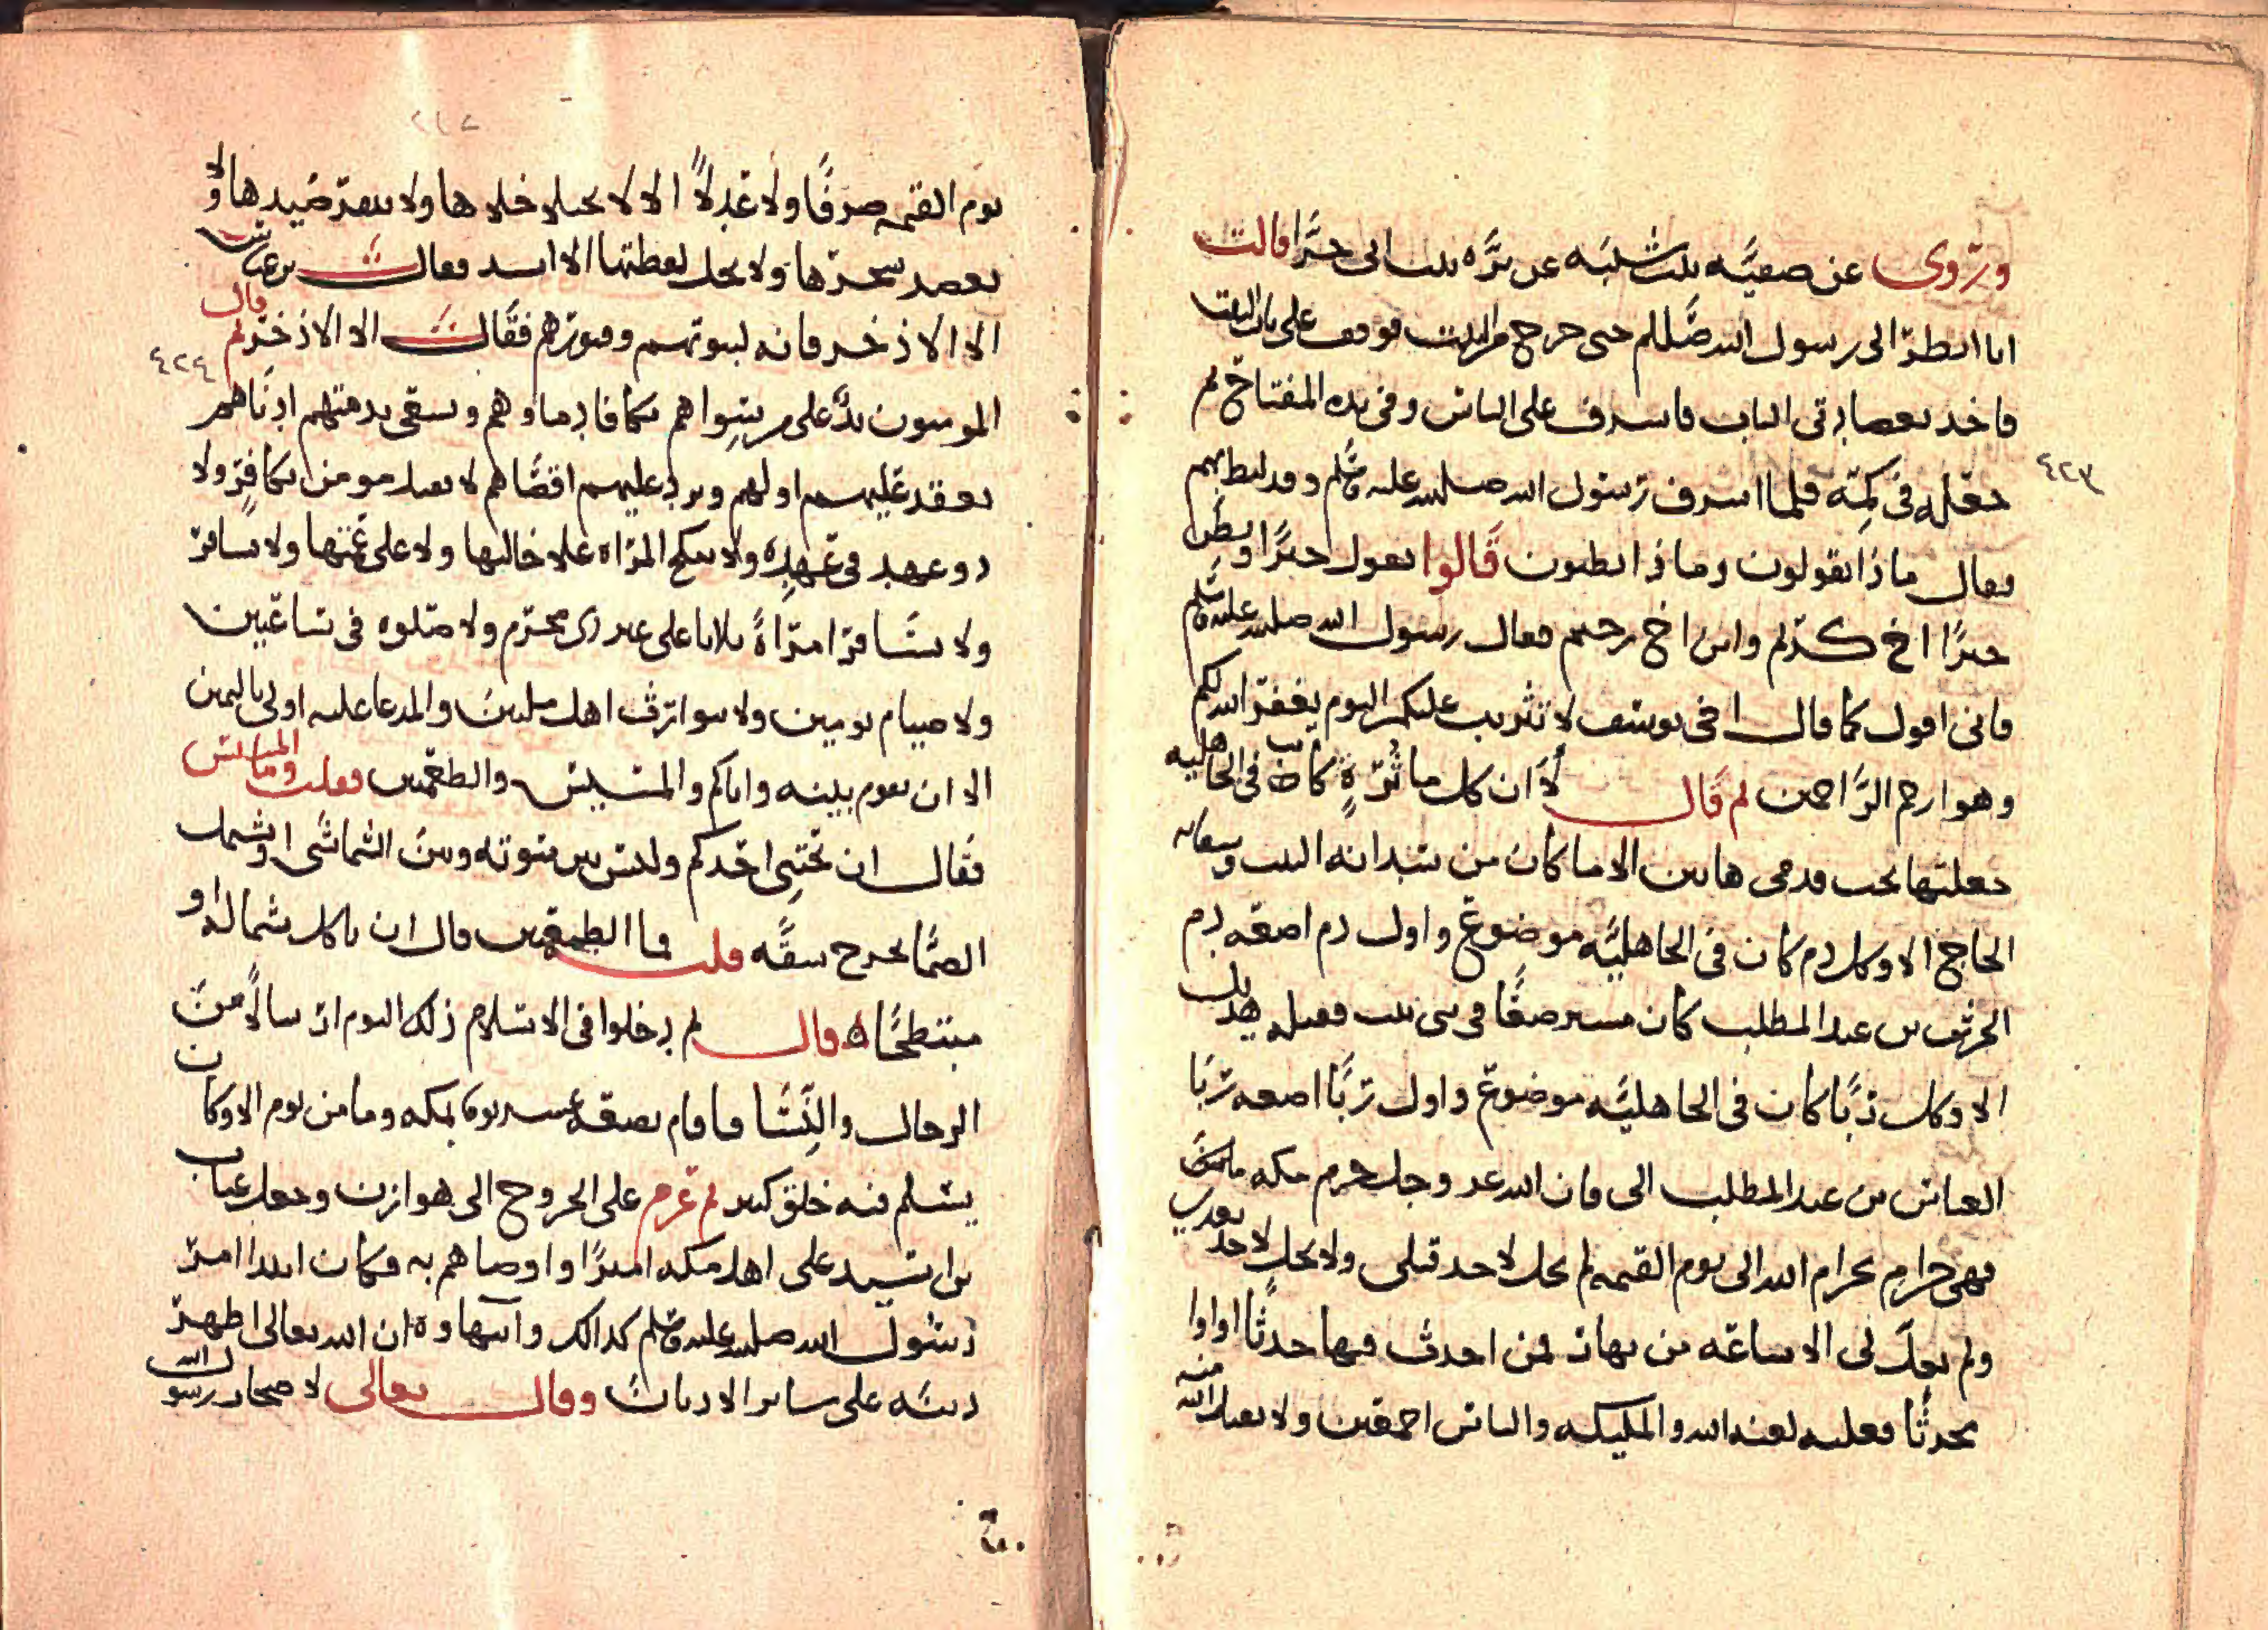 ٤٢٣
وروى عن صفيه بنت شيبه عن بره بنت ابى تجراه قالت
انا انظر الى رسول الله صللم حتى خرج من البيت فوقف على باب البيت
فاخذ بعضادتى الباب فاشرف على الناس وفى يده المفتاح ثم
جعله فى كمه فلما اشرف رسول الله صلى الله عليه وسلم وقد لبط بهم
فقال ماذا تقولون وماذا تظنون قالوا نقول خيرا ونظن
خيرا اخ كريم وابن اخ رحيم فقال رسول الله صلى الله عليه وسلم
فانى اقول كما قال اخى يوسف لا تثريب عليكم اليوم يغفر الله لكم
وهو ارحم الراحمين ثم قال الا ان كل ماثرة كانت فى الجاهليه
جعلتها تحت قدمى هاتين الا ما كان من سدانه البيت وسقايه
الحاج الا وكل دم كان فى الجاهليه موضوع واول دم اضعه دم
الحرث بن عبد المطلب كان مسترضعا فى بنى ليث فقتله هذيل
الا وكل ربا كان فى الجاهليه موضوع واول ربا اضعه ربا
العباس بن عبد المطلب الى فان الله عز وجل حرم مكه
فهى حرام بحرام الله الى يوم القيمه لم تحل لاحد قبلى ولا تحل لاحد بعدى
ولم تحل لى الا ساعه من نهار فمن احدث فيها حدثا او اوا
محدثا فعليه لعنه الله والمليكه والناس اجمعين ولا يقبل الله منه
يوم القيمه صرفا ولا عدلا الا لا يختلا خلاها ولا ينفر صيدها ولا
يعضد شجرها ولا يحل لقطتها الا لمنشد فقال بن عباس
الا الاذخر فانه لبيوتهم وقبورهم فقال الا الاذخر ثم قال
٤٢٤
المومنون يد على من سواهم تكافا دماوهم ويسعى بذمتهم ادناهم
يعقد عليهم اولهم ويرد عليهم اقصاهم لا يقتل مومن بكافر ولا
ذو عهد فى عهده ولا تنكح المراه على خالتها ولا على عمتها ولا تسافر
ولا تسافر امراة ثلاثا على غير ذى محرم ولا صلوه فى ساعتين
ولا صيام يومين ولا يتوارث اهل ملتين والمدعا عليه اولى باليمين
الا ان تقوم بينه واياكم والمتلبسين والطعمتين فقلت وما اللبستين
فقال ان يحتبى احدكم وليس بين سوته وبين السماء شى او يشتمل
الصما يخرج شقه قلت فما الطعمتين قال ان ياكل بشماله او
منبطحا ه قال ثم دخلوا فى الاسلام ذلك اليوم ارسالا من
الرجال والنسا فاقام بضعه عشر يوما بمكه وما من يوم الا وكان
يسلم فيه خلق كثير ثم عزم على الخروج الى هوازن وجعل عتاب
بن اسيد على اهل مكه اميرا واوصاهم به فكان ابتدا امر
رسول الله صلى الله عليه وسلم كذلك وانتهاوه ان الله تعالى اظهر
دينه على ساير الاديان وقال تعالى لاصحاب رسول الله